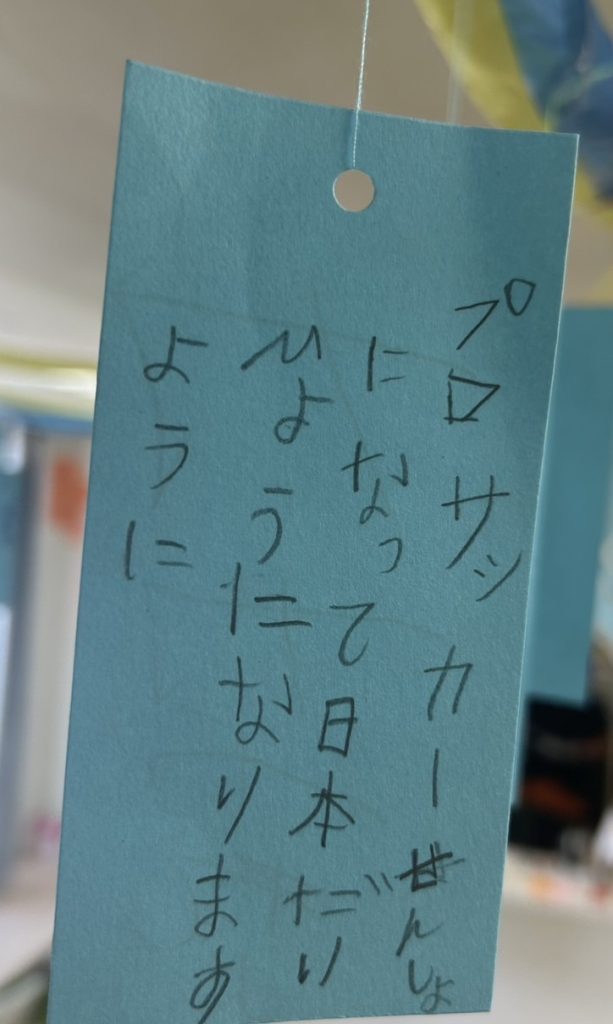 プロサッカーせんしょ
になって日本だい
ひょうになります
ように